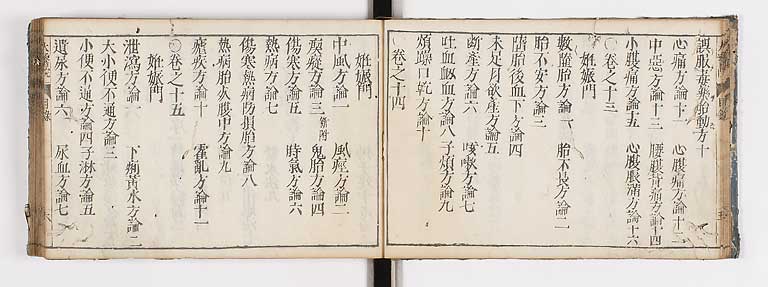 誤服毒藥胎動方十
心痛方論十一 心腹痛方論十二
中惡方論十三 腰腹背痛方論十四
小腹痛方論十五 心腹脹滿方論十六
〇卷之十三
妊娠門
數墮胎方論一 胎不長方論二
胎不安方論三
墮胎後血下方論四
未足月欲產方論五
斷產方論六 咳嗽方論七
吐血衄血方論八 子煩方論九
煩躁口乾方論十
〇卷之十四
妊娠門
中風方論一 風痙方論二
瘈瘲方論三 新附 鬼胎方論四
傷寒方論五 時氣方論六
熱病方論七
傷寒熱病防損胎方論八
熱病胎死腹中方論九
瘧疾方論十 霍亂方論十一
〇卷之十五
妊娠門
泄瀉方論一 下痢黃水方論二
大小便不通方論三
小便不通方論四 子淋方論五
遺尿方論六 尿血方論七